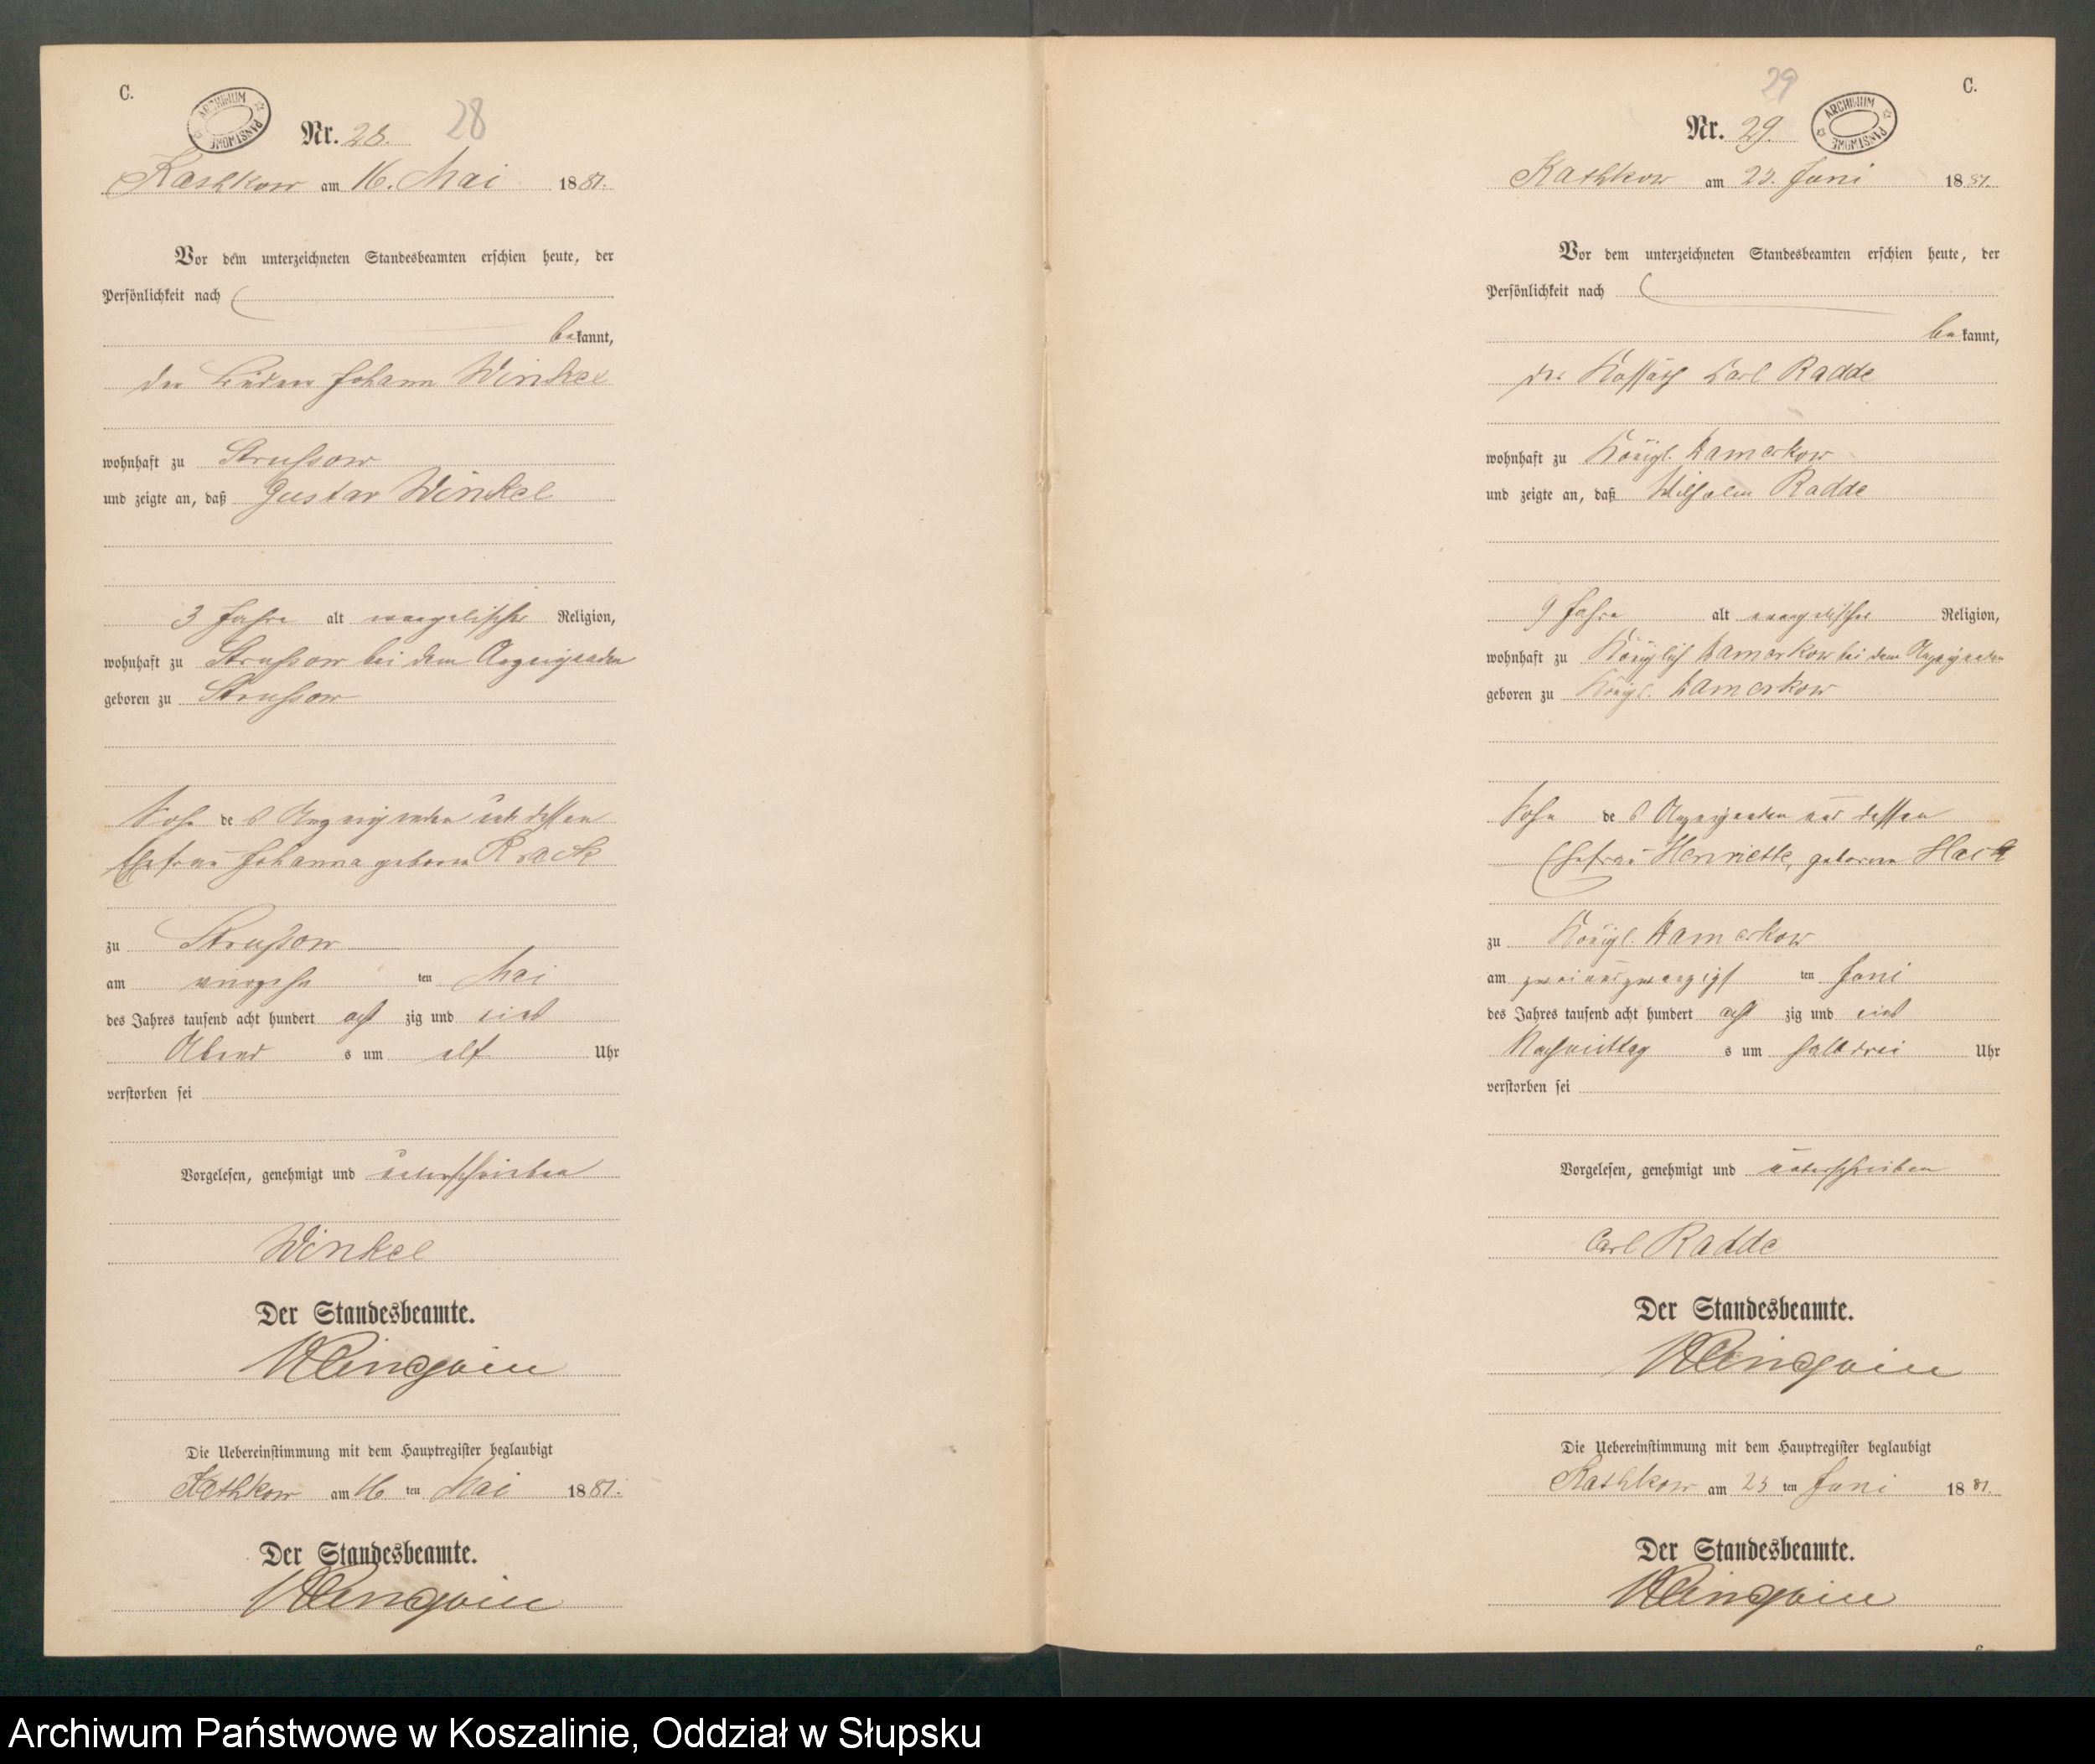 C.
ARCHIWUM PAŃSTWOWE
Nr. 28. 28
Kathkow am 16. Mai 1881.
Vor dem unterzeichneten Standesbeamten erschien heute, der
Persönlichkeit nach
bekannt,
der Johann Winkel
wohnhaft zu Strussow
und zeigte an, daß Gustav Winkel
3 Jahre alt evangelischer Religion,
wohnhaft zu Strussow bei dem Anzeigenden
geboren zu Strussow
Sohn des Anzeigenden und dessen
Ehefrau Johanna geborene Krack
zu Strussow
am vierzehn ten Mai
des Jahres tausend acht hundert acht zig und eins
Abend s um elf Uhr
verstorben sei
Vorgelesen, genehmigt und unterschrieben
Winkel
Der Standesbeamte.
Die Uebereinstimmung mit dem Hauptregister beglaubigt
Kathkow am 16 ten Mai 1881.
Der Standesbeamte.
29
C.
Nr. 29.
ARCHIWUM PAŃSTWOWE
Kathkow am 23. Juni 1881.
Vor dem unterzeichneten Standesbeamten erschien heute, der
Persönlichkeit nach
bekannt,
der Kossäth Carl Radde
wohnhaft zu Königl. Damerkow
und zeigte an, daß Wilhelm Radde
9 Jahre alt evangelischer Religion,
wohnhaft zu Königlich Damerkow bei dem Anzeigenden
geboren zu Königl. Damerkow
Sohn des Anzeigenden und dessen
Ehefrau Henriette, geborene Hack
zu Königl. Damerkow
am zweiundzwanzigst ten Juni
des Jahres tausend acht hundert acht zig und eins
Nachmittag s um halb drei Uhr
verstorben sei
Vorgelesen, genehmigt und unterschrieben
Carl Radde
Der Standesbeamte.
Die Uebereinstimmung mit dem Hauptregister beglaubigt
Kathkow am 23 ten Juni 1881.
Der Standesbeamte.
Archiwum Państwowe w Koszalinie, Oddział w Słupsku